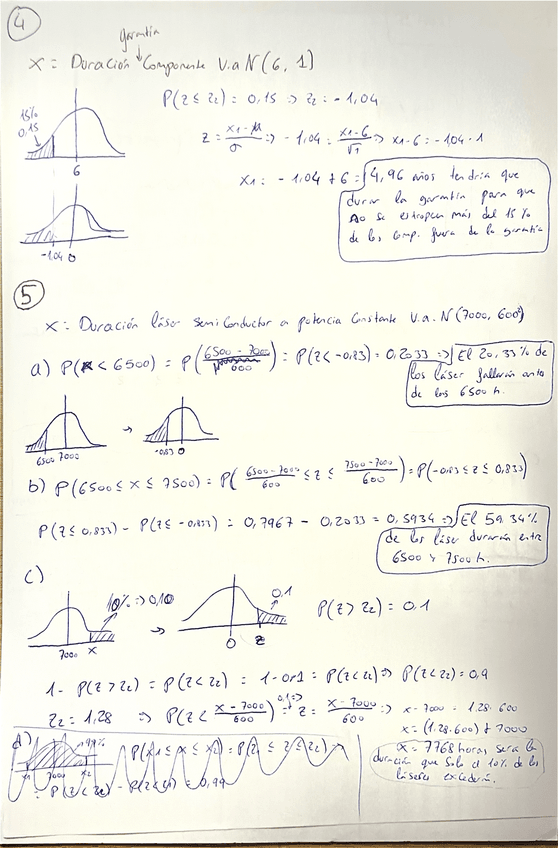 4
garantía
X = Duración Componente V.a N(6, 1)
15%
0,15
6
P(Z ≤ z₂) = 0,15 => z₂ = -1,04
Z = (x₁ - μ)/σ => -1,04 = (x₁-6)/√1 => x₁-6 = -1,04·1
x₁ = -1,04 + 6 = 4,96 años tendría que
durar la garantía para que
no se estropeen más del 15%
de los comp. fuera de la garantía
-1,04 0
5
X = Duración láser semiconductor a potencia constante V.a. N(7000, 600²)
a) P(X < 6500) = P((6500 - 7000)/600) = P(Z < -0,83) = 0,2033 => El 20,33% de
los láser fallarán antes
de las 6500 h.
6500 7000
-0,83 0
b) P(6500 ≤ X ≤ 7500) = P((6500-7000)/600 ≤ Z ≤ (7500-7000)/600) = P(-0,83 ≤ Z ≤ 0,833)
P(Z ≤ 0,833) - P(Z ≤ -0,833) = 0,7967 - 0,2033 = 0,5934 => El 59,34%
de los láser durarán entre
6500 y 7500 h.
C)
10% => 0,10
7000 X
0,1
0 Z
P(Z > z₂) = 0,1
1 - P(Z > z₂) = P(Z < z₂) = 1-0,1 = P(Z < z₂) => P(Z < z₂) = 0,9
z₂ = 1,28 => P(Z < (X-7000)/600) 0,1 => Z = (X-7000)/600 => X - 7000 = 1,28·600
X = (1,28·600) + 7000
X = 7768 horas será la
duración que solo el 10% de los
láseres excederán.
d)
99%
x₁ 7000 x₂
P(x₁ ≤ X ≤ x₂) = P(z₁ ≤ Z ≤ z₂)
= P(Z < z₂) - P(Z < z₁) = 0,99